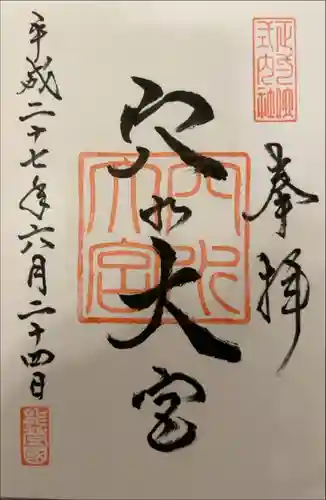 奉拝
穴水大宮
平成二十七年六月二十四日
穴水大宮
能登国